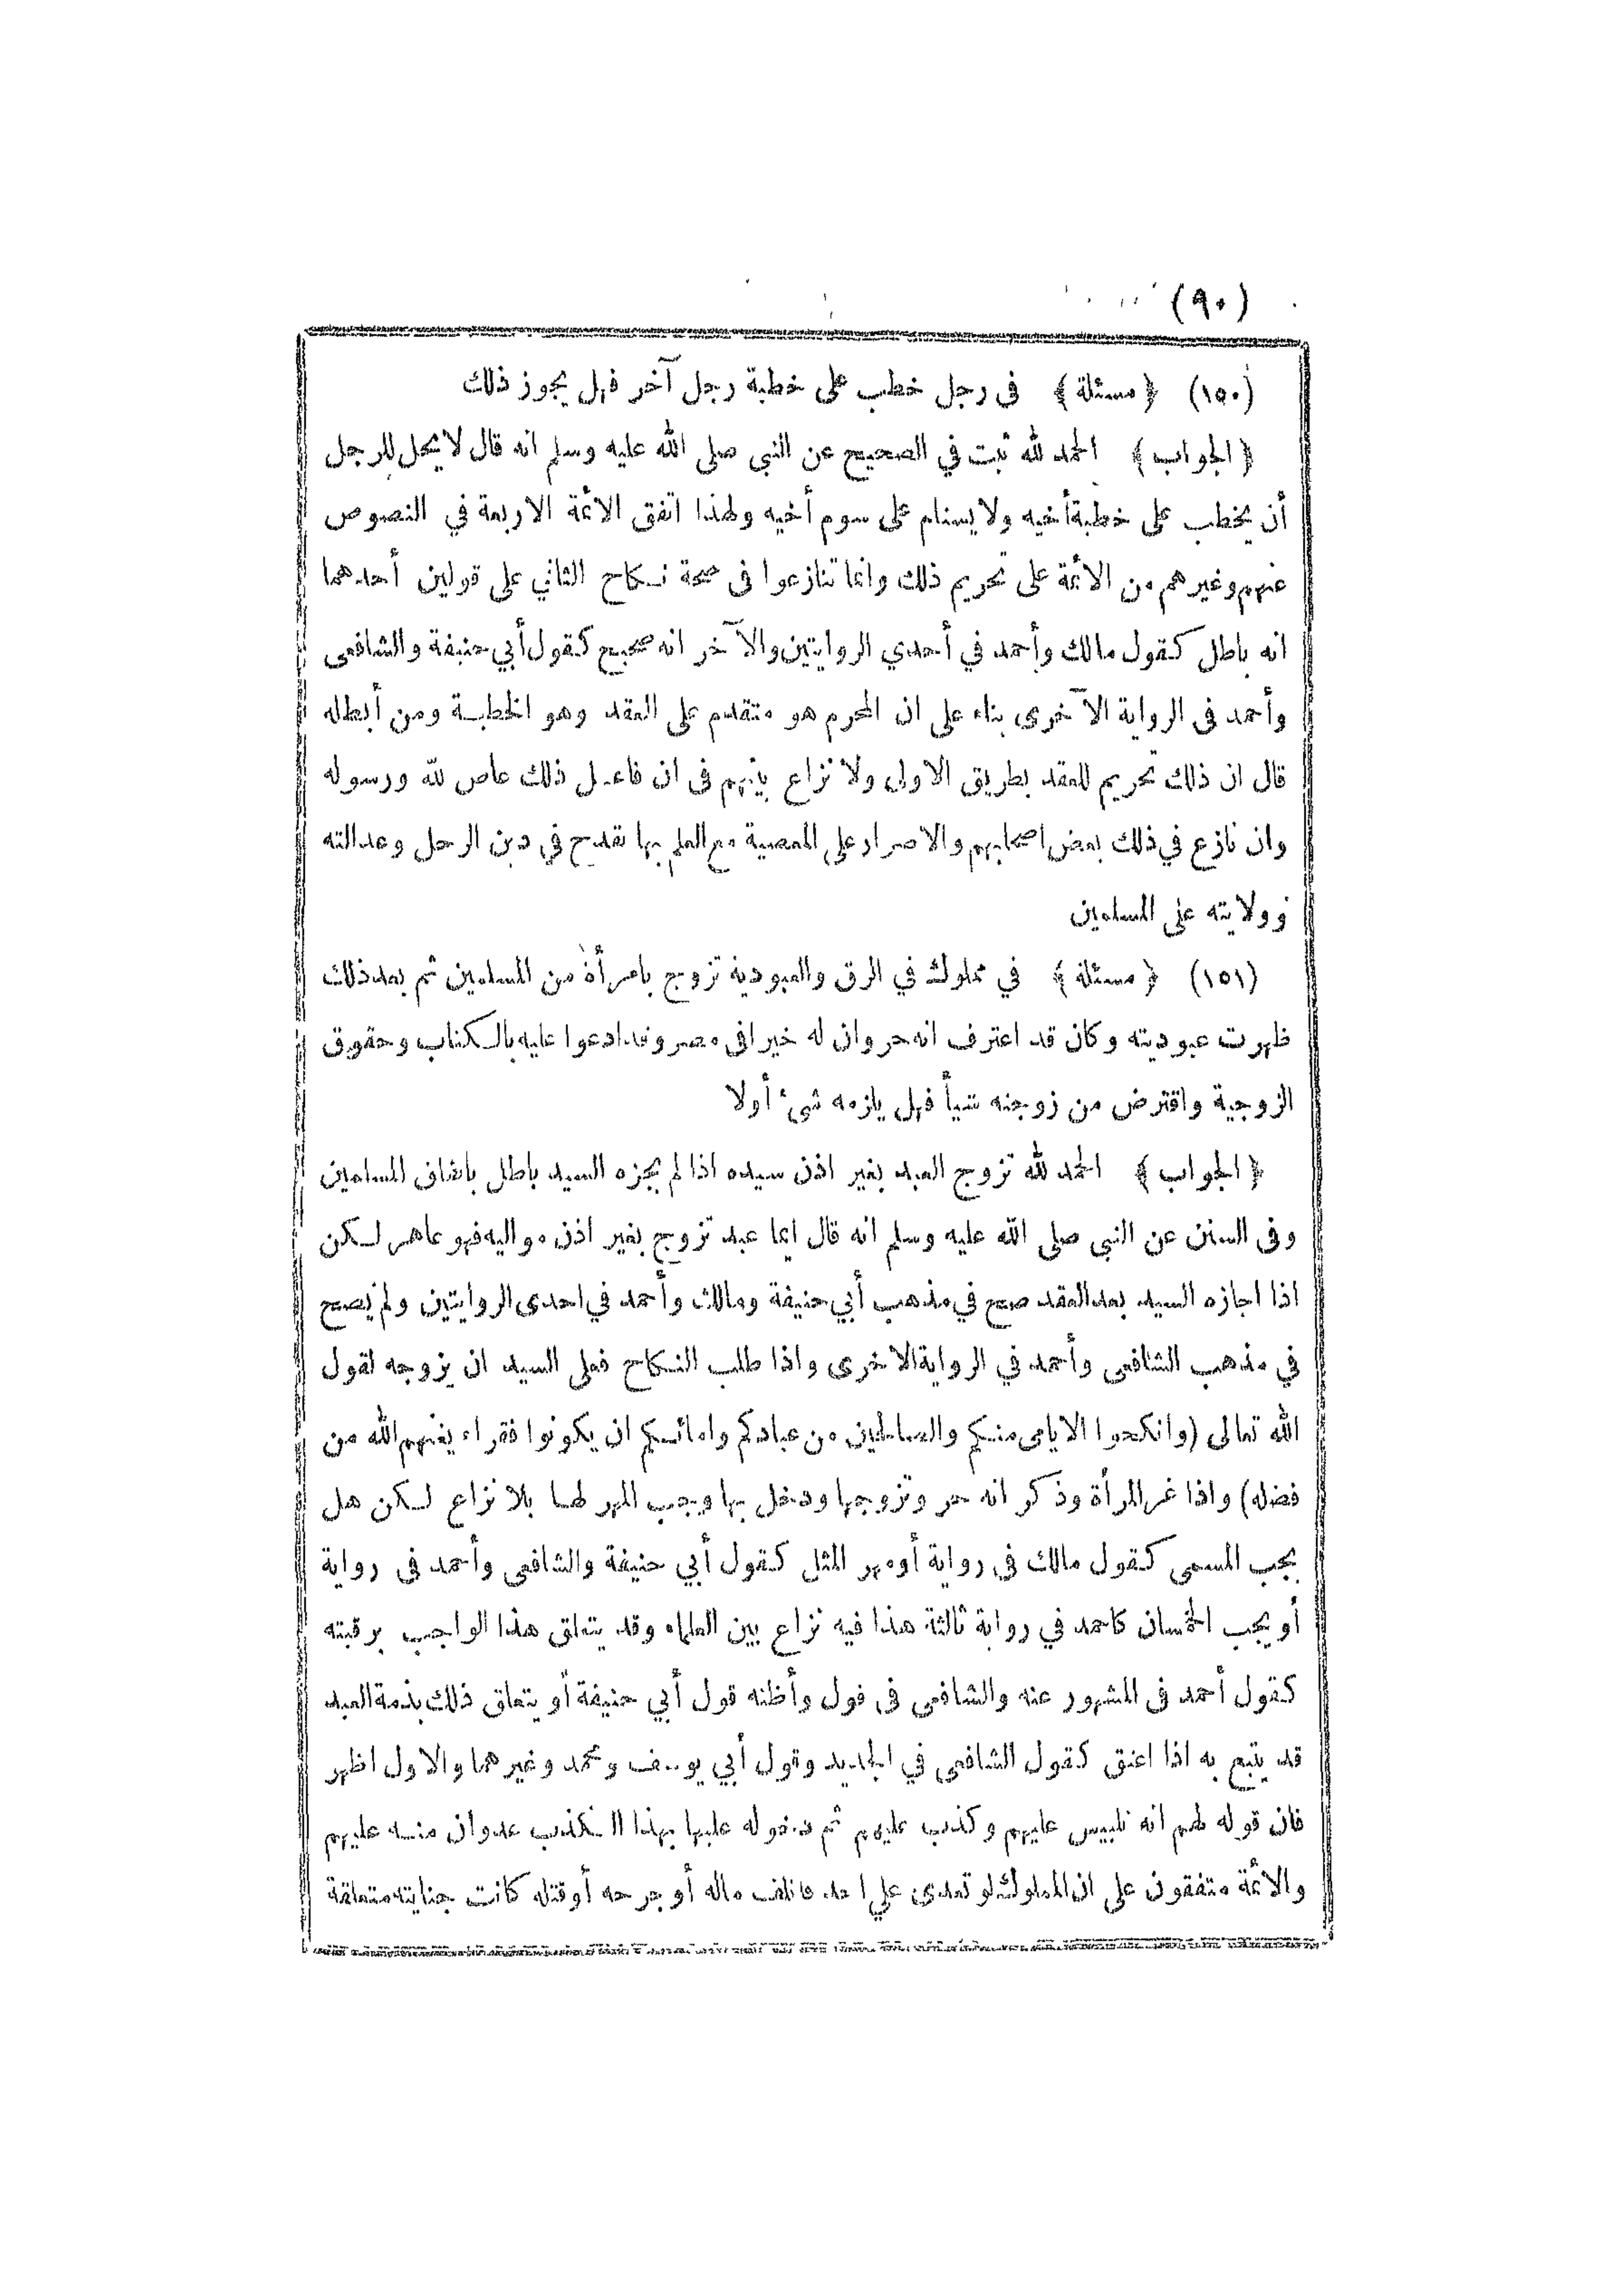 (٩٠)
(١٥٠) ﴿ مسئلة ﴾ فى رجل خطب على خطبة رجل آخر فهل يجوز ذلك
﴿ الجواب ﴾ الحمد لله ثبت في الصحيح عن النبي صلى الله عليه وسلم انه قال لا يحل للرجل
أن يخطب على خطبة أخيه ولا يستام على سوم أخيه ولهذا اتفق الائمة الاربعة في النصوص
عنهم وغيرهم من الائمة على تحريم ذلك وانما تنازعوا فى صحة نكاح الثاني على قولين أحدهما
انه باطل كقول مالك وأحمد في أحدي الروايتين والآخر انه صحيح كقول أبي حنيفة والشافعى
وأحمد فى الرواية الآخرى بناء على ان المحرم هو متقدم على العقد وهو الخطبة ومن أبطله
قال ان ذلك تحريم للعقد بطريق الاولى ولا نزاع بينهم فى ان فاعل ذلك عاص لله ورسوله
وان نازع في ذلك بعض اصحابهم والاصرار على المعصية مع العلم بها تقدح في دين الرجل وعدالته
وولايته على المسلمين
(١٥١) ﴿ مسئلة ﴾ في مملوك في الرق والعبودية تزوج بامرأة من المسلمين ثم بعد ذلك
ظهرت عبوديته وكان قد اعترف انه حر وان له خيرا فى مصر وقد ادعوا عليه بالكتاب وحقوق
الزوجية واقترض من زوجته شيأ فهل يلزمه شئ أولا
﴿ الجواب ﴾ الحمد لله تزوج العبد بغير اذن سيده اذا لم يجزه السيد باطل باتفاق المسلمين
وفى السنن عن النبي صلى الله عليه وسلم انه قال ايما عبد تزوج بغير اذن مواليه فهو عاهر لكن
اذا اجازه السيد بعد العقد صح في مذهب أبي حنيفة ومالك وأحمد في احدى الروايتين ولم يصح
في مذهب الشافعى وأحمد في الرواية الاخرى واذا طلب النكاح فعلى السيد ان يزوجه لقول
الله تعالى (وانكحوا الايامى منكم والصالحين من عبادكم وامائكم ان يكونوا فقراء يغنهم الله من
فضله) واذا غر المرأة وذكر انه حر وتزوجها ودخل بها وجب المهر لها بلا نزاع لكن هل
يجب المسمى كقول مالك فى رواية أو مهر المثل كقول أبي حنيفة والشافعى وأحمد فى رواية
أو يجب الخمسان كاحمد في رواية ثالثة هذا فيه نزاع بين العلماء وقد يتعلق هذا الواجب برقبته
كقول أحمد فى المشهور عنه والشافعى فى قول وأظنه قول أبي حنيفة أو يتعلق ذلك بذمة العبد
قد يتبع به اذا اعتق كقول الشافعى في الجديد وقول أبي يوسف ومحمد وغيرهما والاول اظهر
فان قوله لهم انه تلبيس عليهم وكذب عليهم ثم دخوله عليها بهذا الكذب عدوان منه عليهم
والائمة متفقون على ان المملوك لو تعدى على احد فاتلف ماله أو جرحه أو قتله كانت جنايته متعلقة